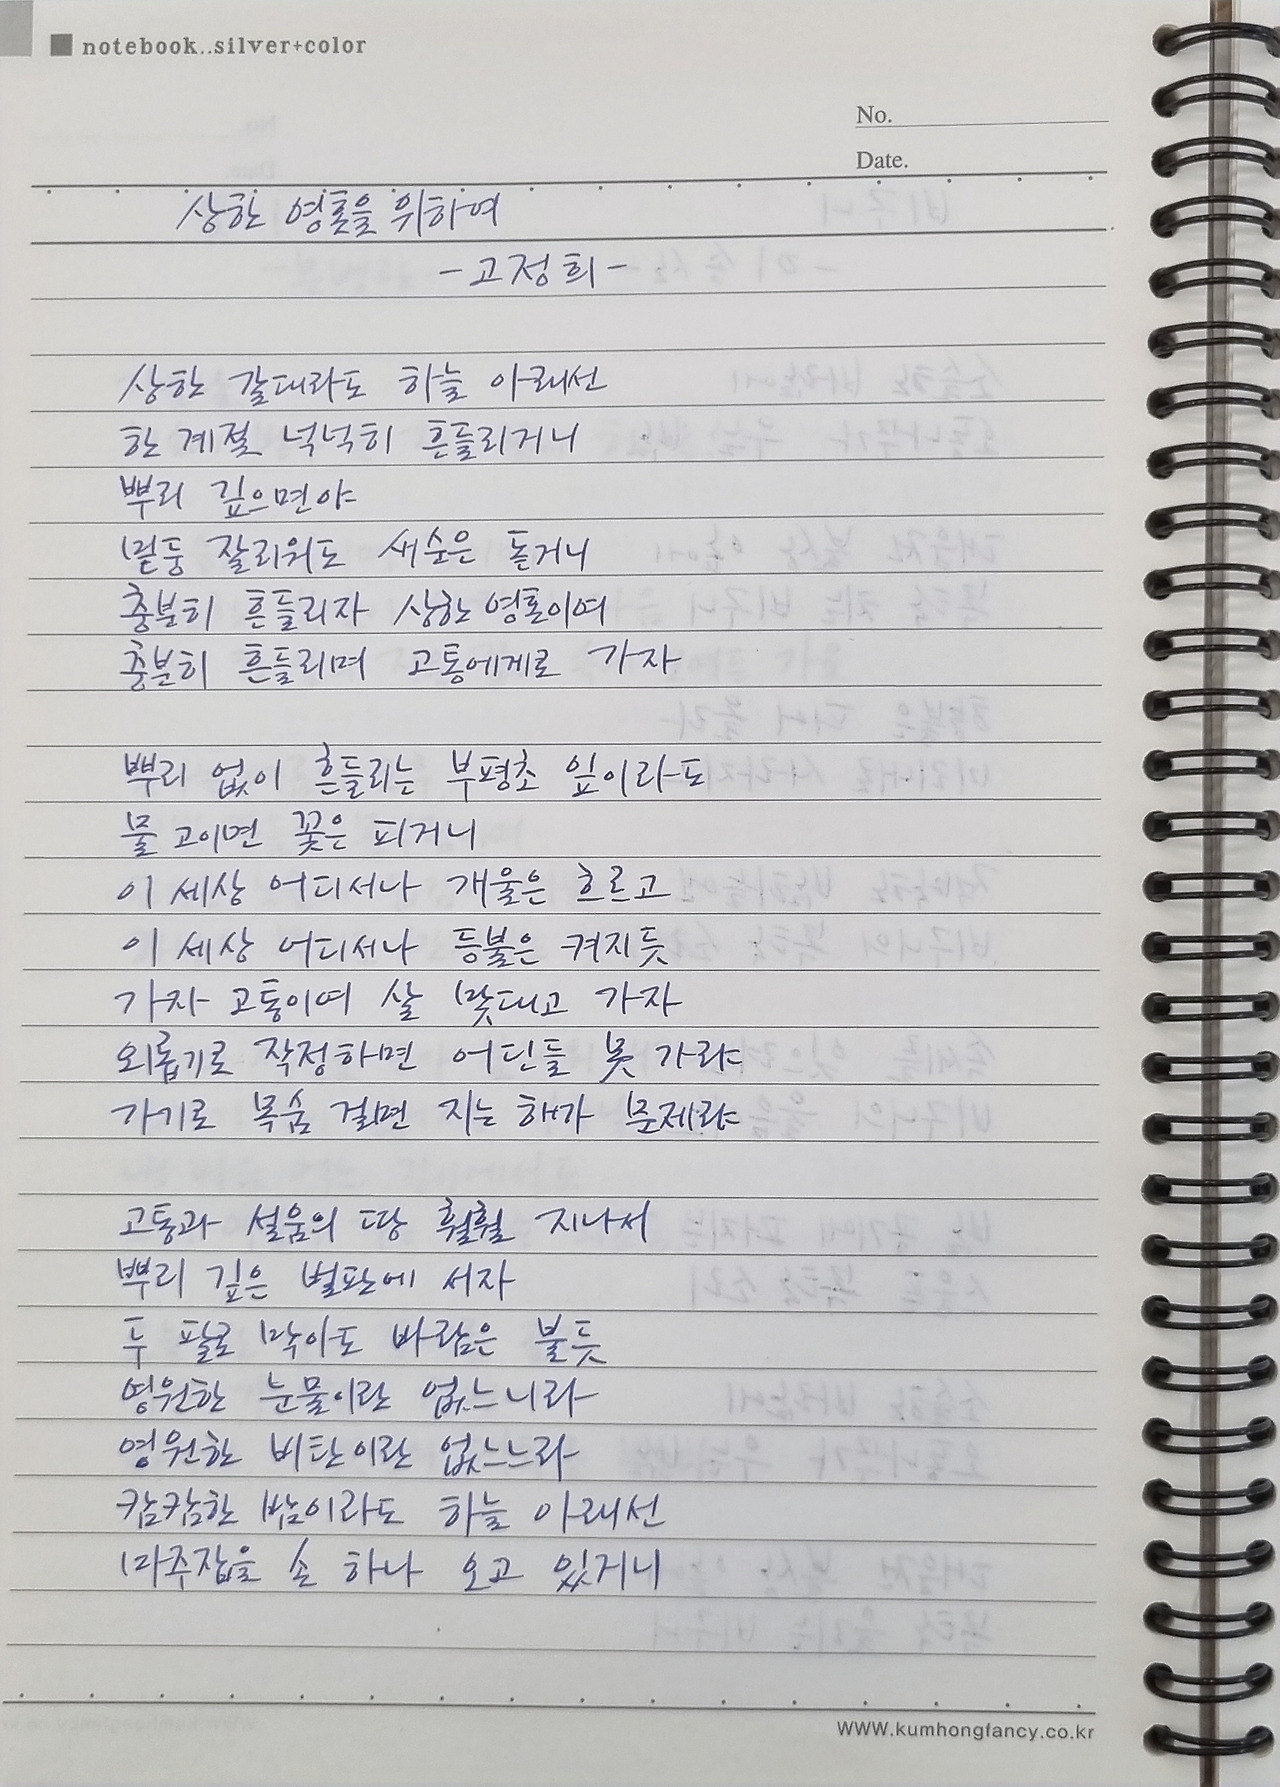 notebook..silver+color
No.
Date.
상한 영혼을 위하여
-고정희-
상한 갈대라도 하늘 아래선
한 계절 넉넉히 흔들리거니
뿌리 깊으면야
밑둥 잘리워도 새순은 돋거니
충분히 흔들리자 상한 영혼이여
충분히 흔들리며 고통에게로 가자
뿌리 없이 흔들리는 부평초 잎이라도
물 고이면 꽃은 피거니
이 세상 어디서나 개울은 흐르고
이 세상 어디서나 등불은 켜지듯
가자 고통이여 살 맞대고 가자
외롭기로 작정하면 어딘들 못 가랴
가기로 목숨 걸면 지는 해가 문제랴
고통과 설움의 땅 훨훨 지나서
뿌리 깊은 벌판에 서자
두 팔로 막아도 바람은 불듯
영원한 눈물이란 없느니라
영원한 비탄이란 없느느라
캄캄한 밤이라도 하늘 아래선
마주잡을 손 하나 오고 있거니
WWW.kumhongfancy.co.kr